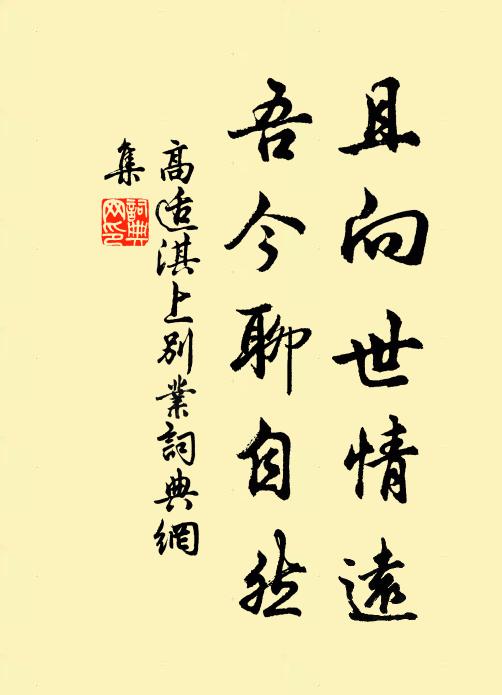 且向世情遠
吾今聊自然
高适淇上別業詞典網
集
詞典
网印